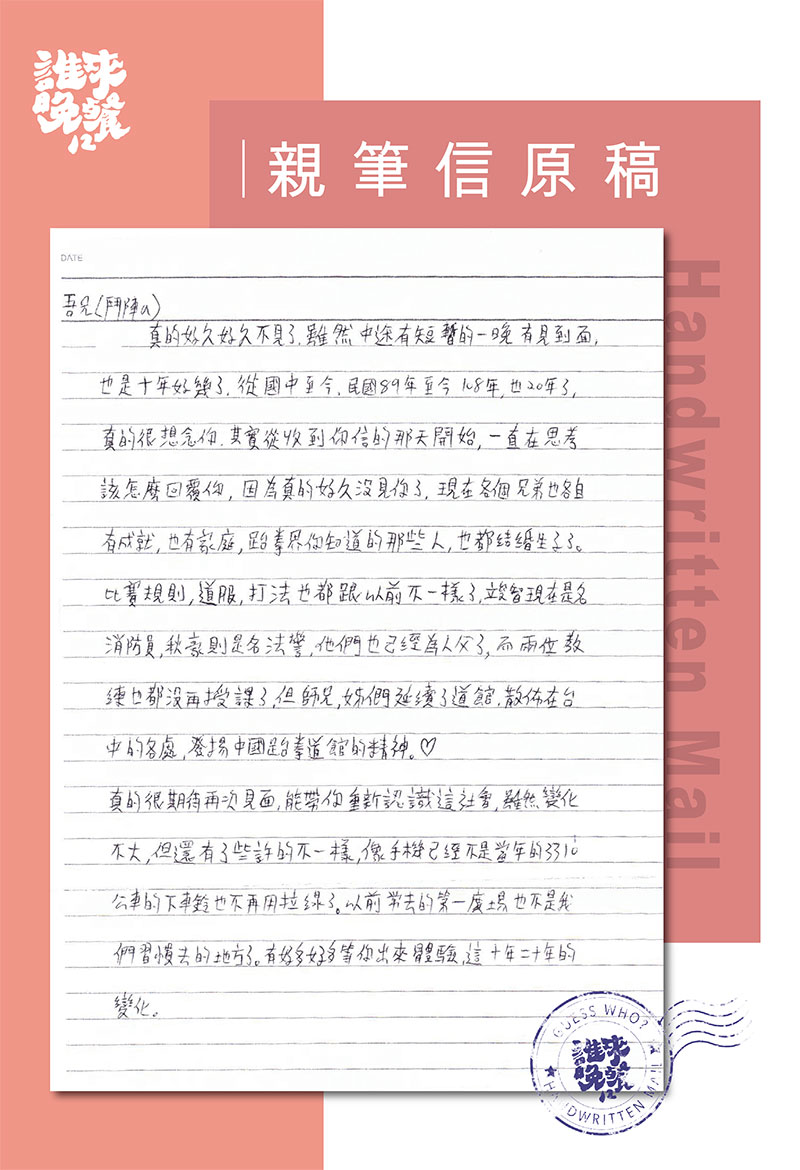 誰來
晚餐
12
親筆信原稿
Handwritten Mail
DATE
吾兄(鬥陣a)
真的好久好久不見了,雖然中途有短暫的一晚有見到面,
也是十年好幾了,從國中至今,民國89年至今108年,也20年了,
真的很想念你,其實從收到你信的那天開始,一直在思考
該怎麼回覆你,因為真的好久沒見你了,現在各個兄弟也各自
有成就,也有家庭,跆拳界你知道的那些人,也都結婚生子了。
比賽規則,道服,打法也都跟以前不一樣了,現在是名
消防員,秋豪則是名法警,他們也已經為人父了,而兩位教
練也都沒再授課了,但師兄,姊們延續了道館,散佈在台
中的各處,發揚中國跆拳道館的精神。♡
真的很期待再次見面,能帶你重新認識這社會,雖然變化
不大,但還有了些許的不一樣,像手機已經不是當年的3310
公車的下車鈴也不再用拉線了。以前常去的第一廣場也不是我
們習慣去的地方了。有好多好多等你出來體驗,這十年二十年的
變化。
GUESS WHO?
誰來
晚餐
12
HANDWRITTEN MAIL